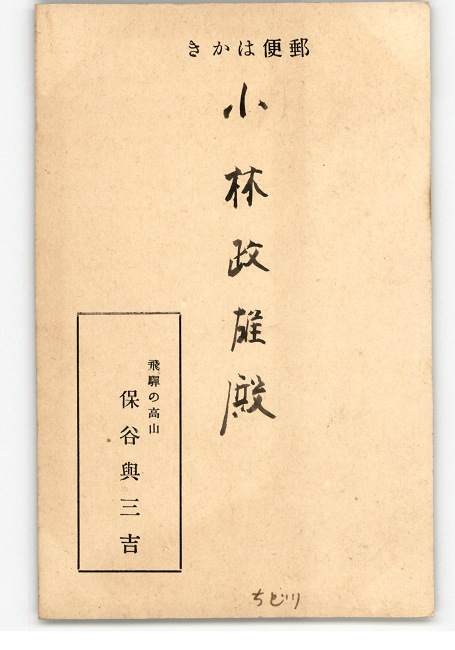 郵便はかき
小林政雄殿
飛驒の高山
保谷與三吉